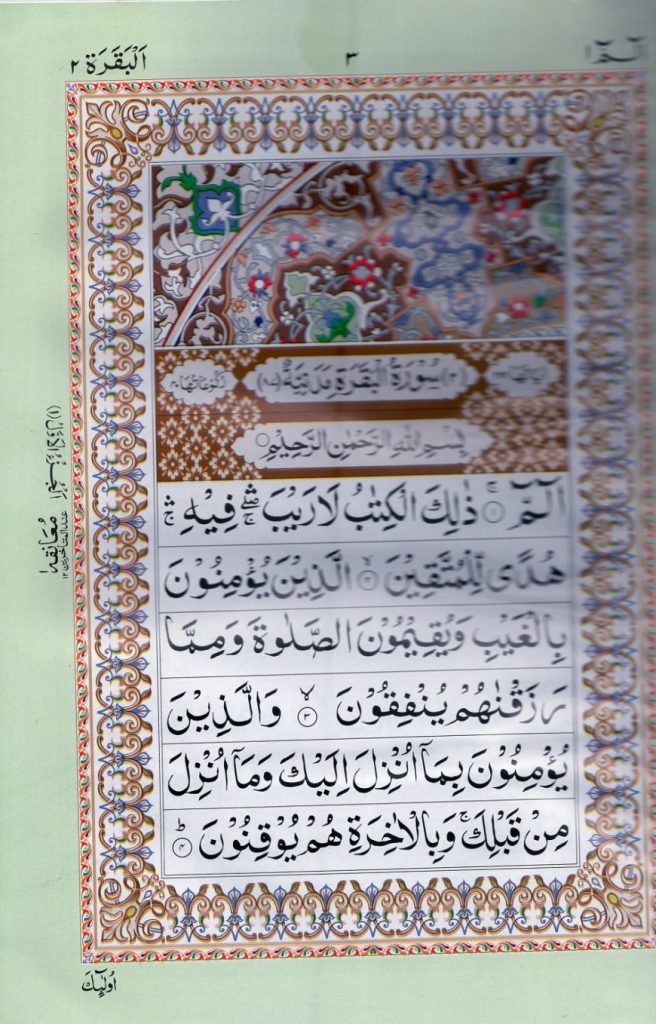 الٓمّٓ ١
٣
اَلْبَقَرَة ٢
(٢) سُوْرَةُ الْبَقَرَةِ مَدَنِيَّةٌ (٨٧)
رُكُوْعَاتُهَا ٤٠
بِسْمِ اللّٰهِ الرَّحْمٰنِ الرَّحِيْمِ
الٓمّٓ ۚ﴿١﴾ ذٰلِكَ الْكِتٰبُ لَا رَيْبَ ۛۖۚ فِيْهِ ۛۚ
هُدًى لِّلْمُتَّقِيْنَ ۙ﴿٢﴾ الَّذِيْنَ يُؤْمِنُوْنَ
بِالْغَيْبِ وَيُقِيْمُوْنَ الصَّلٰوةَ وَمِمَّا
رَزَقْنٰهُمْ يُنْفِقُوْنَ ۙ﴿٣﴾ وَالَّذِيْنَ
يُؤْمِنُوْنَ بِمَآ اُنْزِلَ اِلَيْكَ وَمَآ اُنْزِلَ
مِنْ قَبْلِكَ ۚ وَبِالْاٰخِرَةِ هُمْ يُوْقِنُوْنَ ؕ﴿٤﴾
معانقة ١
اُولٰٓئِكَ